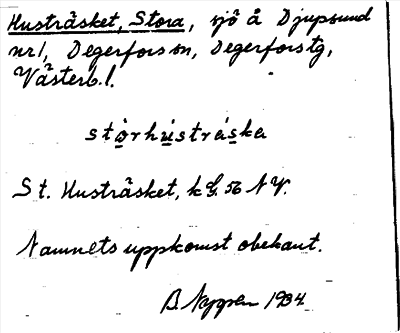 Husträsket, Stora, sjö å Djupsund
nr 1, Degerfors sn, Degerfors tg,
Västerb. l.
stòrhùsträ́ska
St. Husträsket, k G. 56 NV.
Namnets uppkomst obekant.
B. Nygren 1934